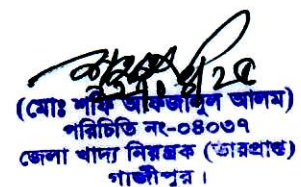 ২৫
(মোঃ শফি আফজালুল আলম)
পরিচিতি নং-০৪০৩৭
জেলা খাদ্য নিয়ন্ত্রক (ভারপ্রাপ্ত)
গাজীপুর।